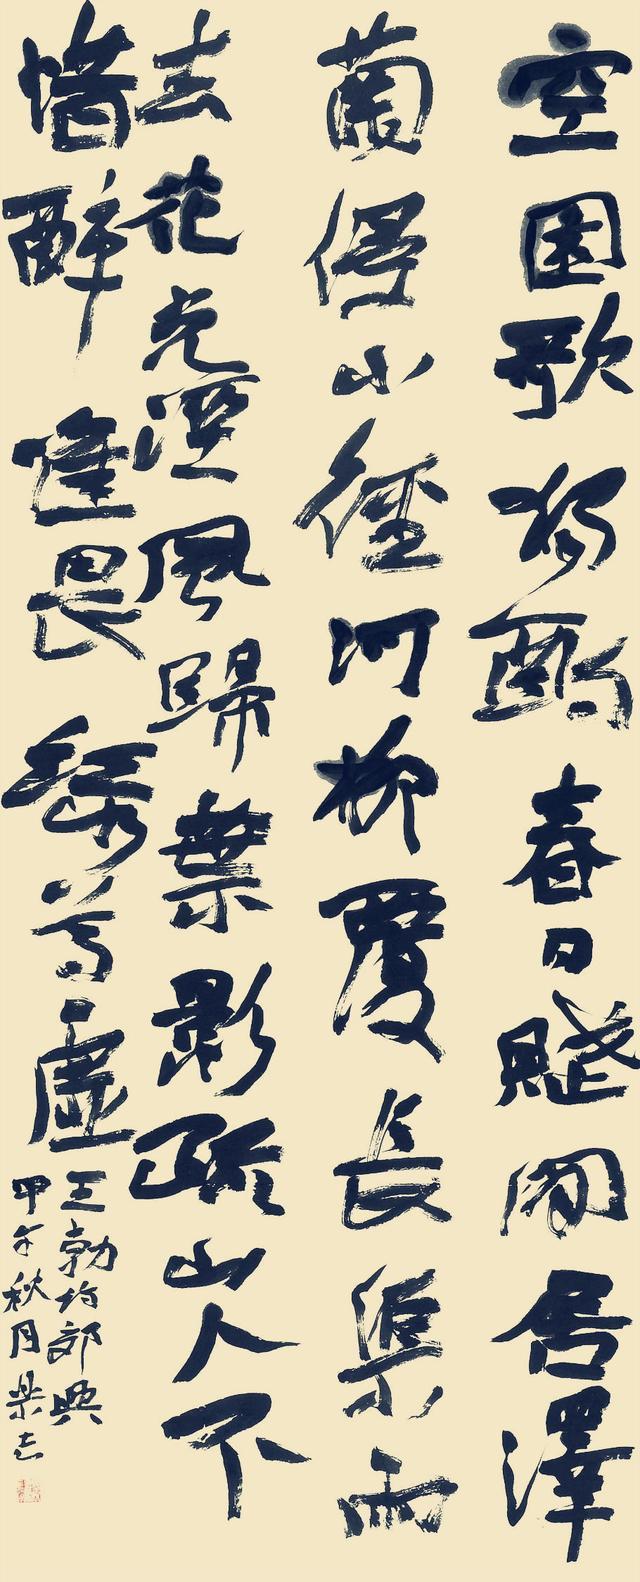 空園歌獨酌春日賦閒居澤
蘭侵小徑河柳覆長渠雨
去花光濕風歸葉影疏山人不
惜醉唯畏綠尊虛
王勃郊興
甲午秋月樂志